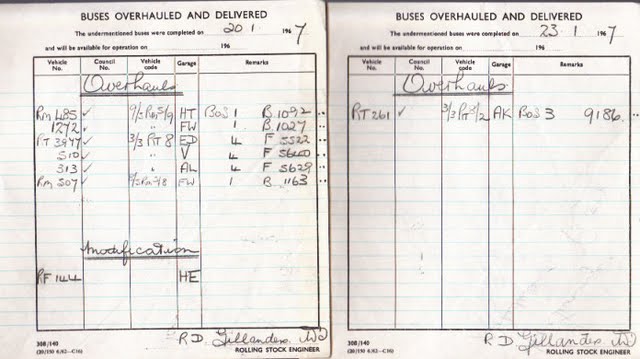 BUSES OVERHAULED AND DELIVERED
The undermentioned buses were completed on 20 1 1967
and will be available for operation on 196
Vehicle No. Council No. Vehicle code Garage Remarks
Overhauls
RM 485 ✓ 9/5 RM 5/9 HT BOS 1 B.1092 "
1272 ✓ " FW 1 B.1027 "
RT 3947 ✓ 3/3 RT 8 ED 4 F 5522 "
510 ✓ " V 4 F "
313 ✓ " AL 4 F 5629 "
RM 507 ✓ FW 1 B 1163 "
Modification
RF 144 HE
R D Gillanders
ROLLING STOCK ENGINEER
308/140
BUSES OVERHAULED AND DELIVERED
The undermentioned buses were completed on 23 1 1967
and will be available for operation on 196
Vehicle No. Council No. Vehicle code Garage Remarks
Overhauls
RT 261 ✓ AK BOS 3 9186 "
R D Gillanders
ROLLING STOCK ENGINEER
308/140